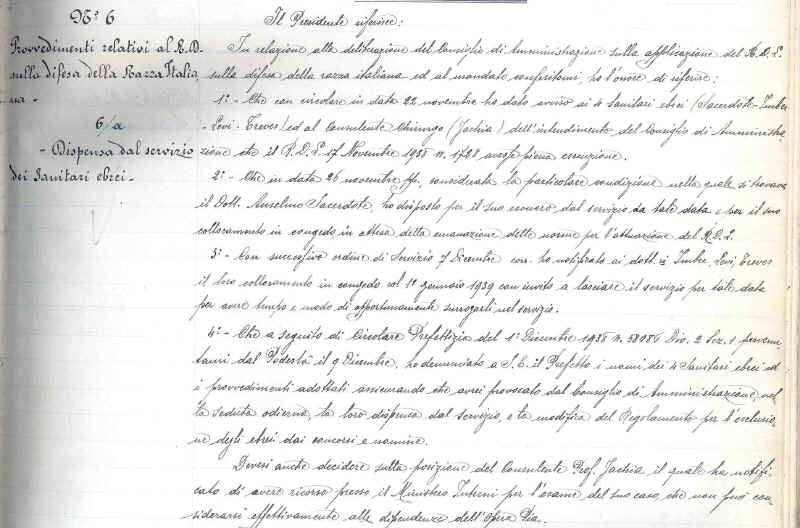 Nº 6
Provvedimenti relativi al R.D.
sulla difesa della Razza Italia,
na -
6/a
- Dispensa dal servizio
dei Sanitari ebrei -
Il Presidente riferisce:
In relazione alla deliberazione del Consiglio di Amministrazione sulla applicazione del R.D.L.
sulla difesa della razza italiana ed al mandato conferitomi, ho l'onore di riferire:
1º - Che con circolare in data 22 novembre ho dato avviso ai 4 Sanitari ebrei (Sacerdote - Imber
- Levi - Treves) ed al Consulente Chirurgo (Jachia) dell'intendimento del Consiglio di Amministra,
zione che il R.D.L. 17 Novembre 1938 n. 1728 avesse piena esecuzione.
2º - Che in data 26 novembre, considerata la particolare condizione nella quale si trovava
il Dott. Anselmo Sacerdote, ho disposto per il suo esonero dal servizio da tale data e per il suo
collocamento in congedo in attesa della emanazione delle norme per l'attuazione del R.D.L.
3º - Con successivo ordine di Servizio 7 Dicembre corr. ho notificato ai dott. Imber, Levi, Treves
il loro collocamento in congedo col 1º gennaio 1939 con invito a lasciare il servizio per tale data
per avere tempo e modo di opportunamente surrogarli nel servizio.
4º - Che a seguito di Circolare Prefettizia del 1º Dicembre 1938 n. 58086 Div. 2 Sez. 1 pervenu,
tami dal Podestà il 9 Dicembre, ho denunciato a S.E. il Prefetto i nomi dei 4 Sanitari ebrei ed
i provvedimenti adottati assicurando che avrei provocato dal Consiglio di Amministrazione, nel,
la seduta odierna, la loro dispensa dal servizio, e la modifica del Regolamento per l'esclusio,
ne degli ebrei dai concorsi e nomine.
Devesi anche decidere sulla posizione del Consulente Prof. Jachia il quale ha notifi,
cato di avere ricorso presso il Ministero Interni per l'esame del suo caso, che non può con,
siderarsi effettivamente alle dipendenze dell'Opera Pia.